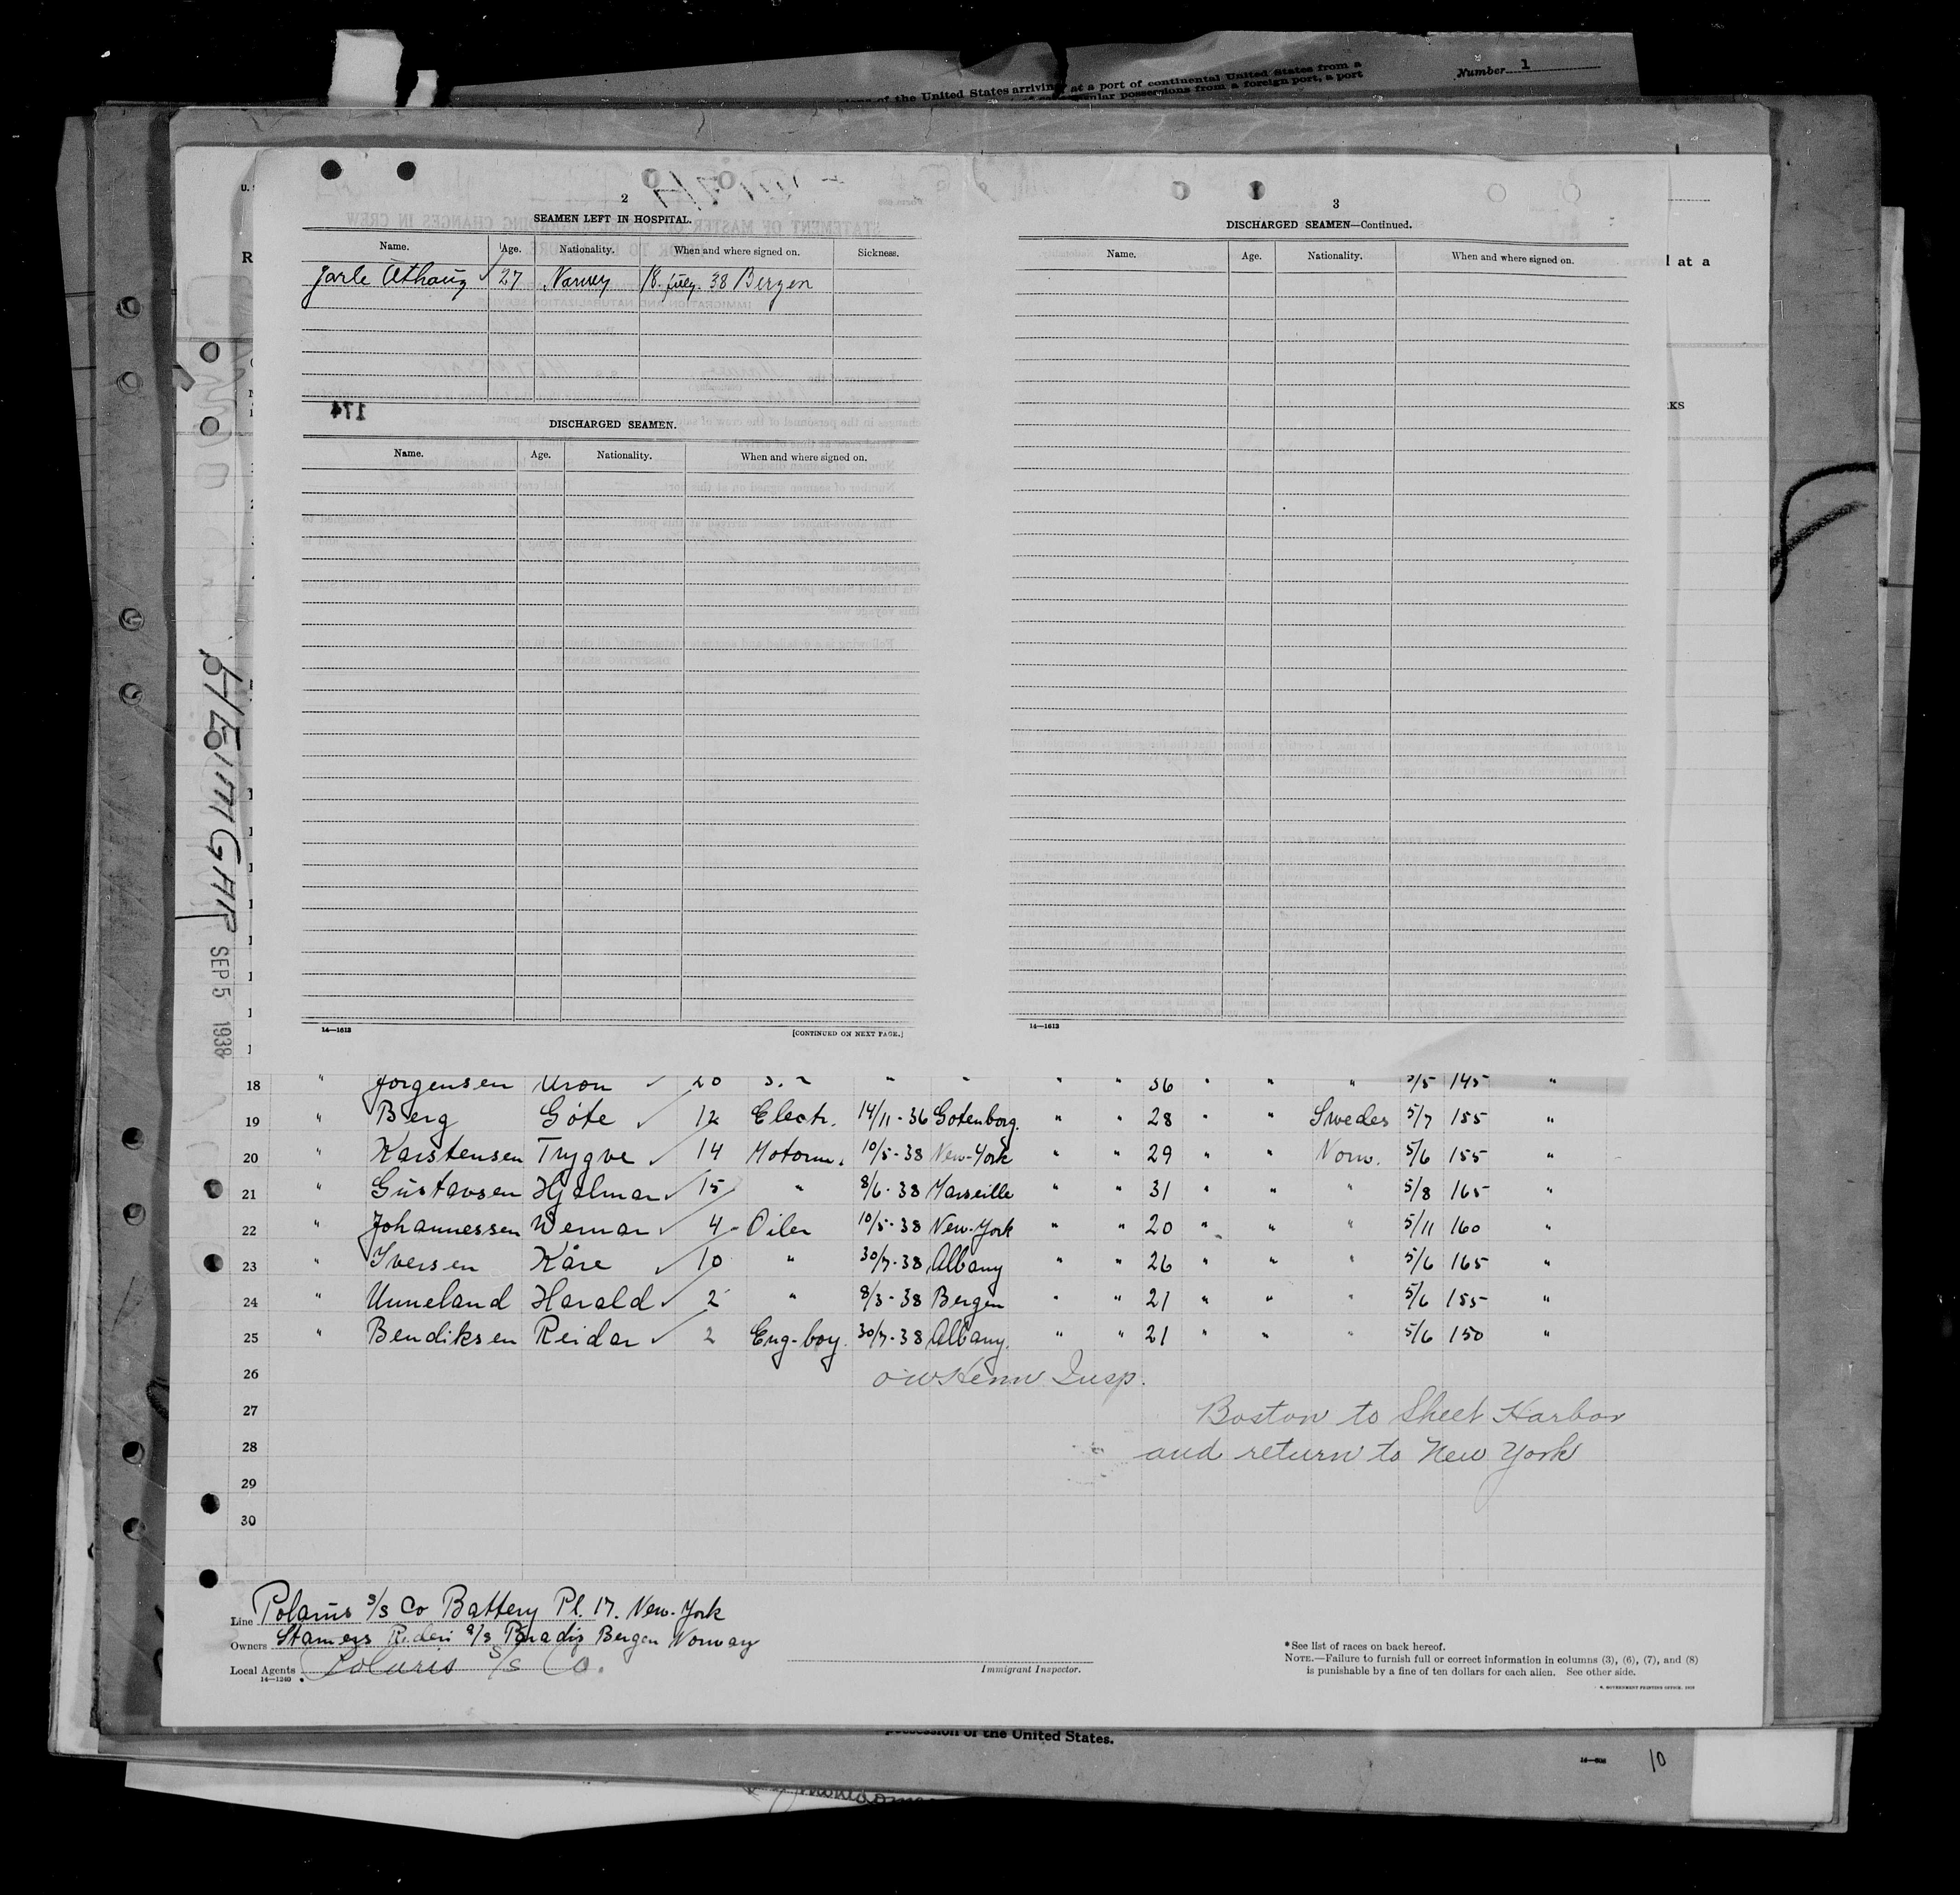 Number 1
sions of the United States arriving at a port of continental United States from a
possessions from a foreign port, a port
2
SEAMEN LEFT IN HOSPITAL.
Name. Age. Nationality. When and where signed on. Sickness.
Jarle 27 Norway 18. July. 38 Bergen
174
DISCHARGED SEAMEN.
Name. Age. Nationality. When and where signed on.
14—1613 [CONTINUED ON NEXT PAGE.]
3
DISCHARGED SEAMEN—Continued.
Name. Age. Nationality. When and where signed on.
14—1613
U.
R
l at a
KS
HEIMGAR
SEP 5 1938
18 " Jorgensen 20 " " " " 36 " " " 5/5 145 "
19 " Berg Göte 12 Electr. 14/11-36 Gotenborg. " " 28 " " Swedes 5/7 155 "
20 " Karstensen Trygve 14 Motorm. 10/5-38 New-York " " 29 " " Norw. 5/6 155 "
21 " Gustavsen Hjalmar 15 " 8/6-38 Marseille " " 31 " " " 5/8 165 "
22 " Johannessen Wernar 4 Oiler 10/5-38 New-York " " 20 " " " 5/11 160 "
23 " Iversen Kåre 10 " 30/7-38 Albany " " 26 " " " 5/6 165 "
24 " Unneland Harald 2 " 8/3-38 Bergen " " 21 " " " 5/6 155 "
25 " Bendiksen Reidar 2 Eng-boy. 30/7-38 Albany. " " 21 " " " 5/6 150 "
26 Insp.
27 Boston to Sheet Harbor
28 and return to New York
29
30
Line Polaris s/s Co Battery Pl. 17. New-York
Owners Rederi a/s Paradis Bergen Norway
Local Agents Polaris S/S Co.
14—1240
Immigrant Inspector.
*See list of races on back hereof.
NOTE.—Failure to furnish full or correct information in columns (3), (6), (7), and (8)
is punishable by a fine of ten dollars for each alien. See other side.
GOVERNMENT PRINTING OFFICE
possession of the United States.
10